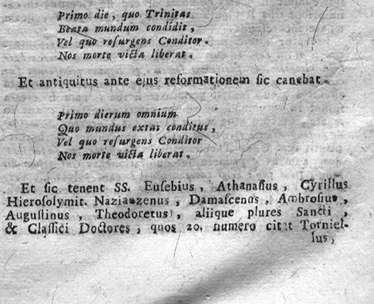 Primo die, quo Trinitas
Beata mundum condidit,
Vel quo resurgens Conditor.
Nos morte victa liberat.
Et antiquitus ante ejus reformationem sic canebat.
Primo dierum omnium
Quo mundus extat conditus,
Vel quo resurgens Conditor
Nos morte victa liberat.
Et sic tenent SS. Eusebius, Athanasius, Cyrillus
Hierosolymit. Nazianzenus, Damascenus, Ambrosius,
Augustinus, Theodoretus, aliique plures Sancti,
& Classici Doctores, quos 20. numero citat Torniel-
lus,